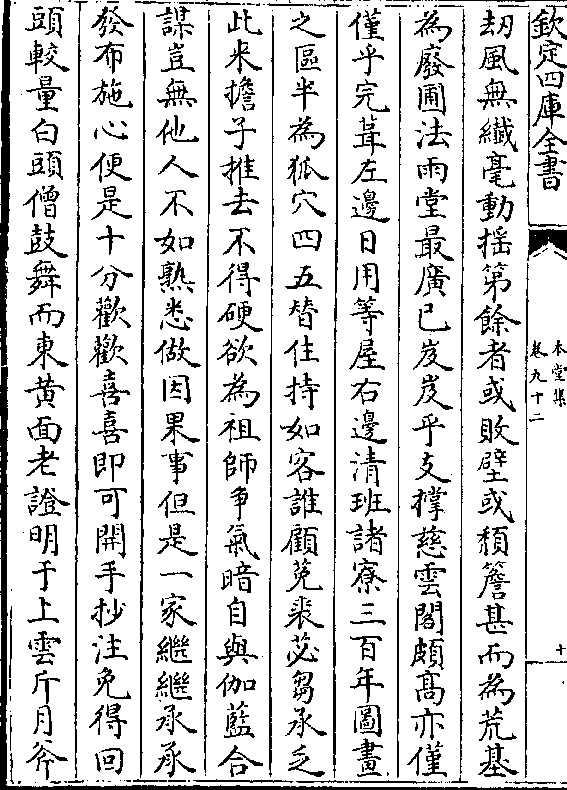 欽定四庫全書
本堂集
卷九十二
十
刼風無纎毫動揺第餘者或敗壁或頽簷甚而為荒基
為廢圃法雨堂最廣已岌岌乎支撑慈雲閣頗髙亦僅
僅乎完葺左邊日用等屋右邊清班諸寮三百年圖畫
之區半為狐穴四五替住持如客誰顧莵裘苾芻承乏
此来擔子推去不得硬欲為祖師爭氣暗自與伽藍合
謀豈無他人不如熟悉做因果事但是一家繼繼承承
發布施心便是十分歡歡喜喜即可開手抄注免得回
頭較量白頭僧鼓舞而東黄面老證明于上雲斤月斧